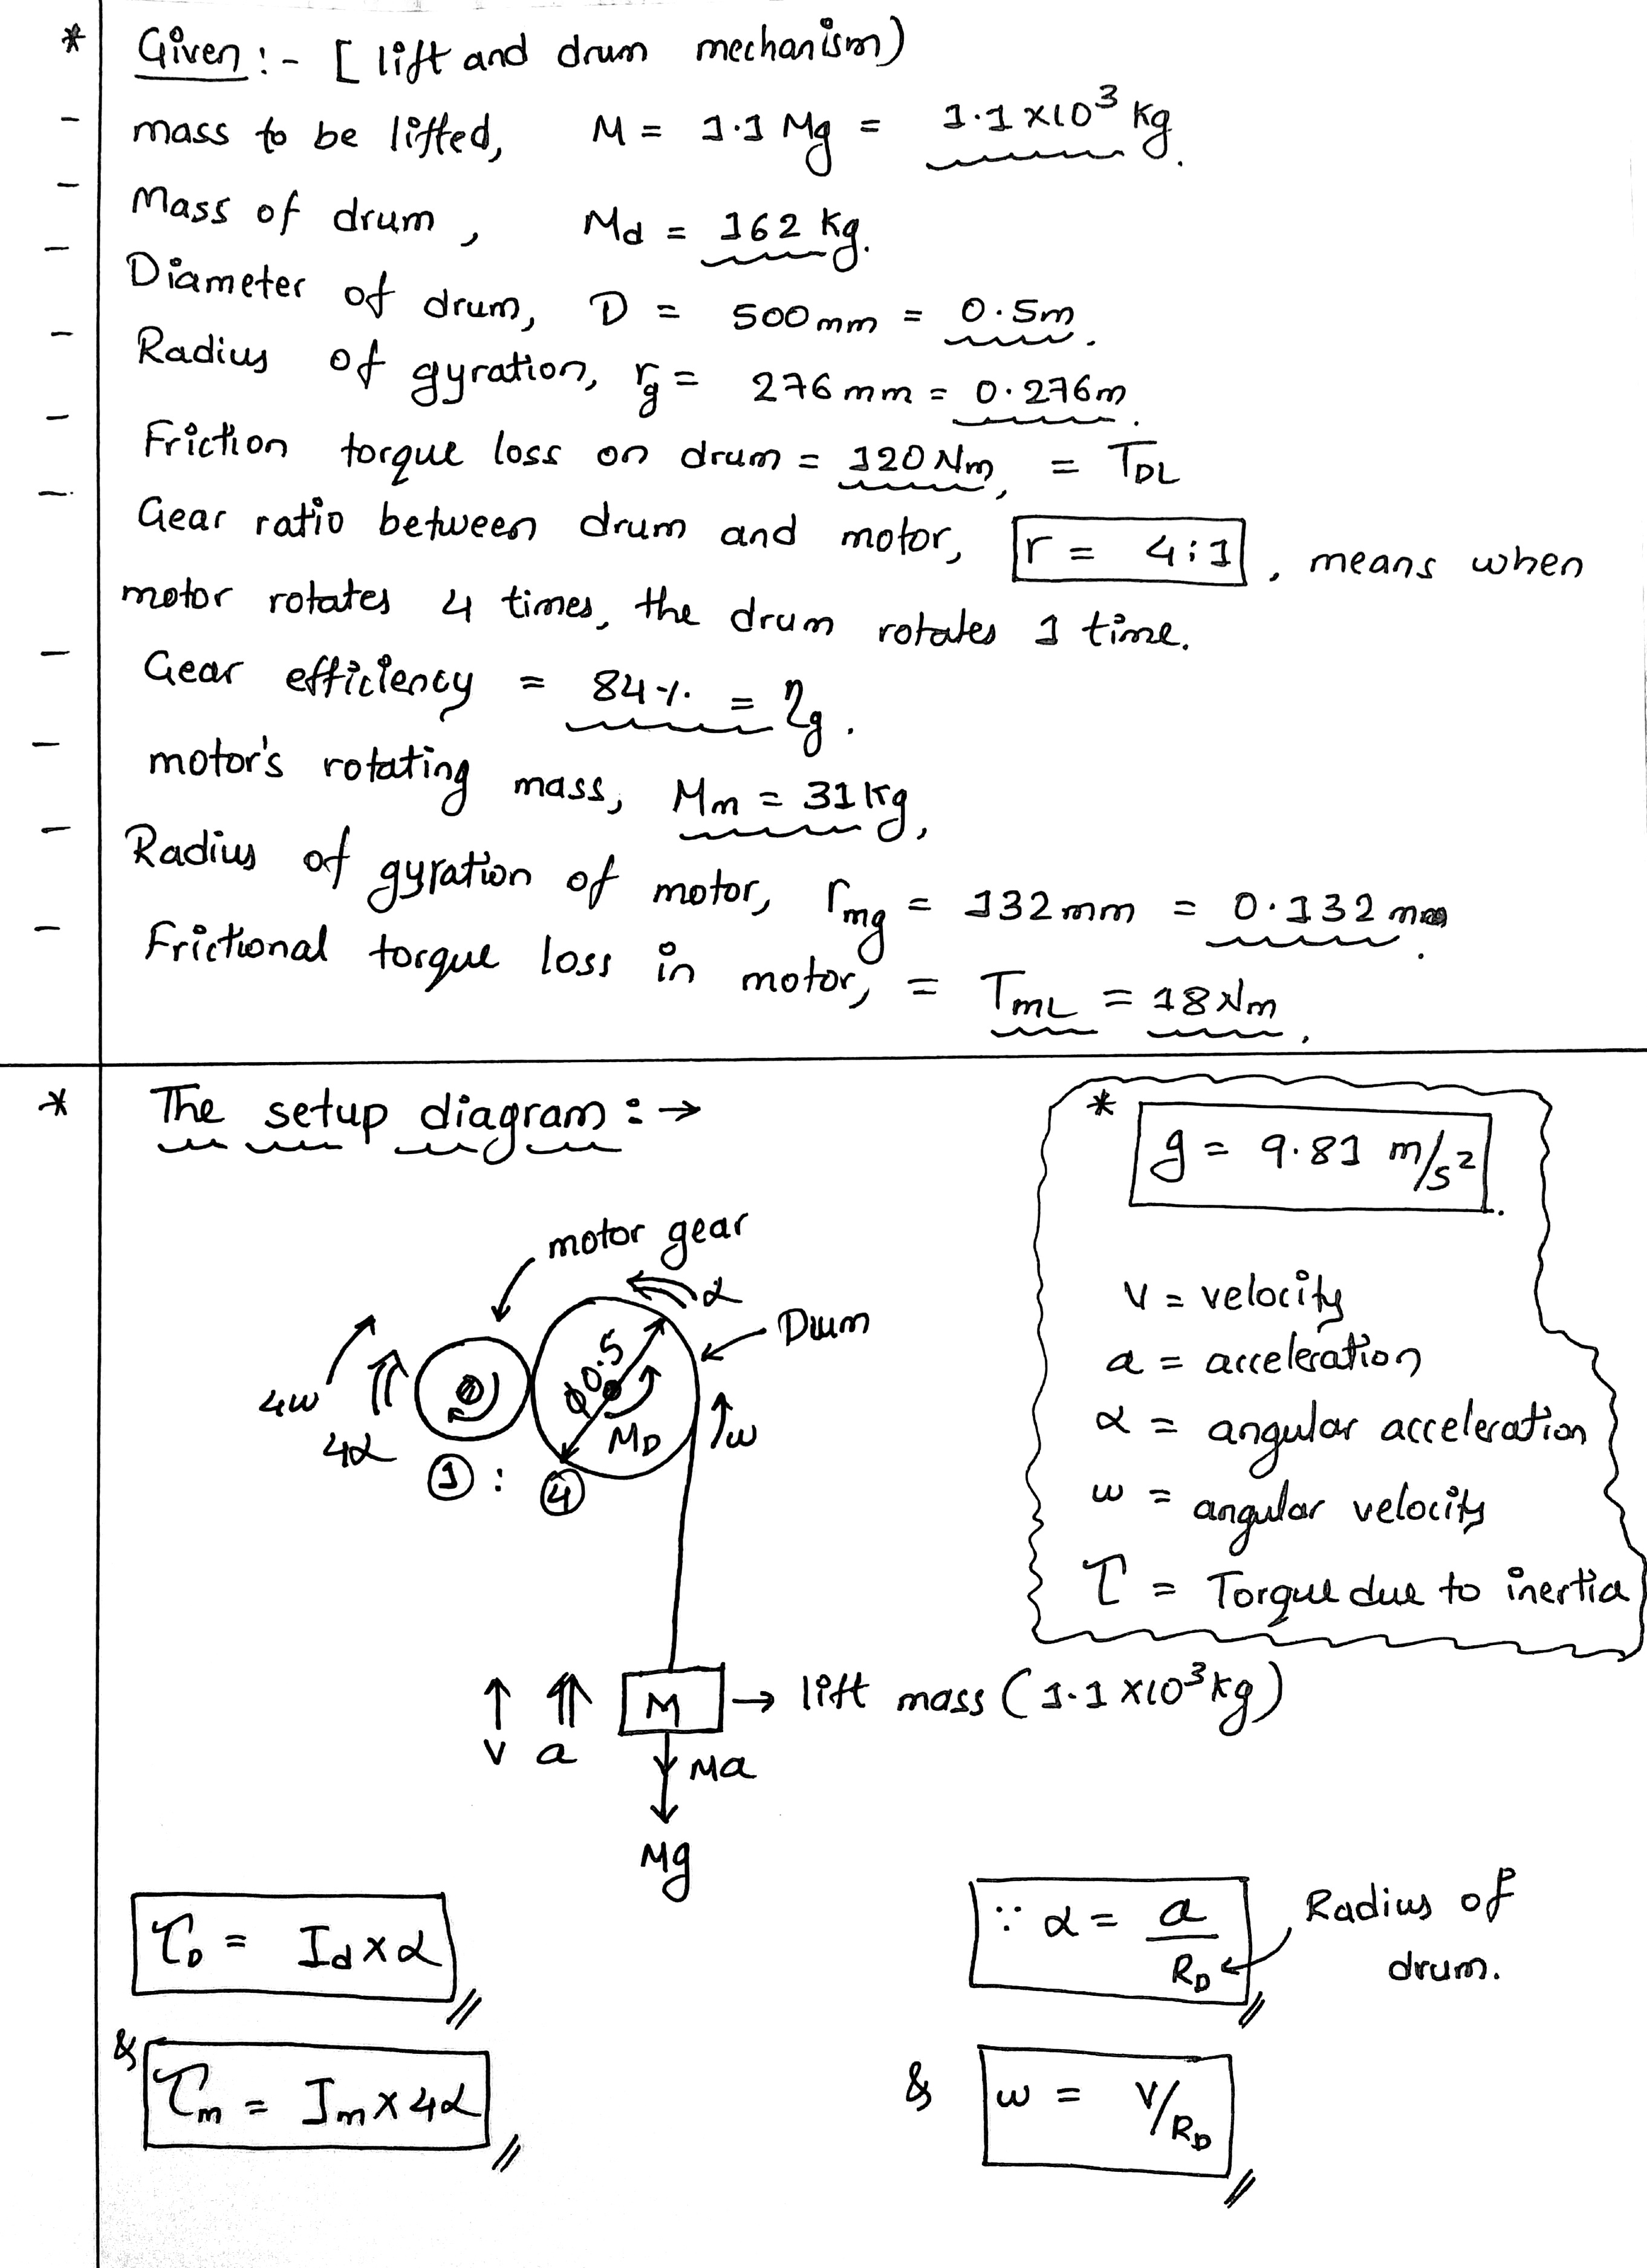 * Given :- [ lift and drum mechanism)
- mass to be lifted, M = 1.1 Mg = 1.1 x10³ kg.
- Mass of drum, Md = 162 kg.
- Diameter of drum, D = 500mm = 0.5m.
- Radius of gyration, rg = 276 mm = 0.276m.
- Friction torque loss on drum = 120 Nm, = TDL
- Gear ratio between drum and motor, r = 4:1, means when
motor rotates 4 times, the drum rotates 1 time.
- Gear efficiency = 84% = ηg.
- motor's rotating mass, Mm = 31kg,
- Radius of gyration of motor, rmg = 132mm = 0.132 m.
- Frictional torque loss in motor, = TmL = 18Nm.
* The setup diagram : →
* g = 9.81 m/s².
v = velocity
a = acceleration
α = angular acceleration
ω = angular velocity
τ = Torque due to inertia
motor gear
α
Drum
φ0.5
4ω
4α
MD
ω
1 : 4
v a M → lift mass (1.1 x10³kg)
Ma
Mg
τD = Id x α
∵ α = a/RD
Radius of
drum.
& τm = Im x 4α
& ω = v/RD